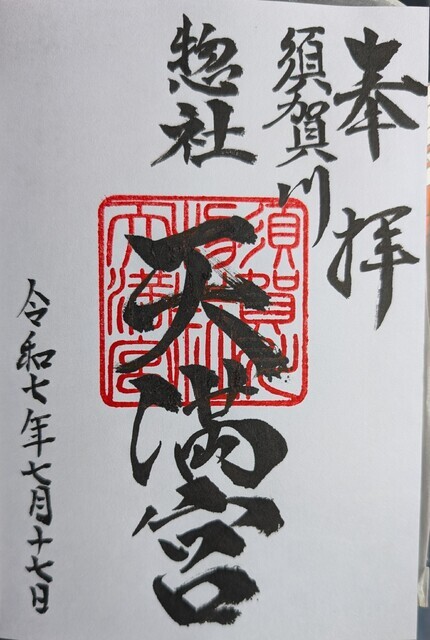 奉拝
須賀川
惣社
天満宮
令和七年七月十七日
須賀川
惣社
天満宮